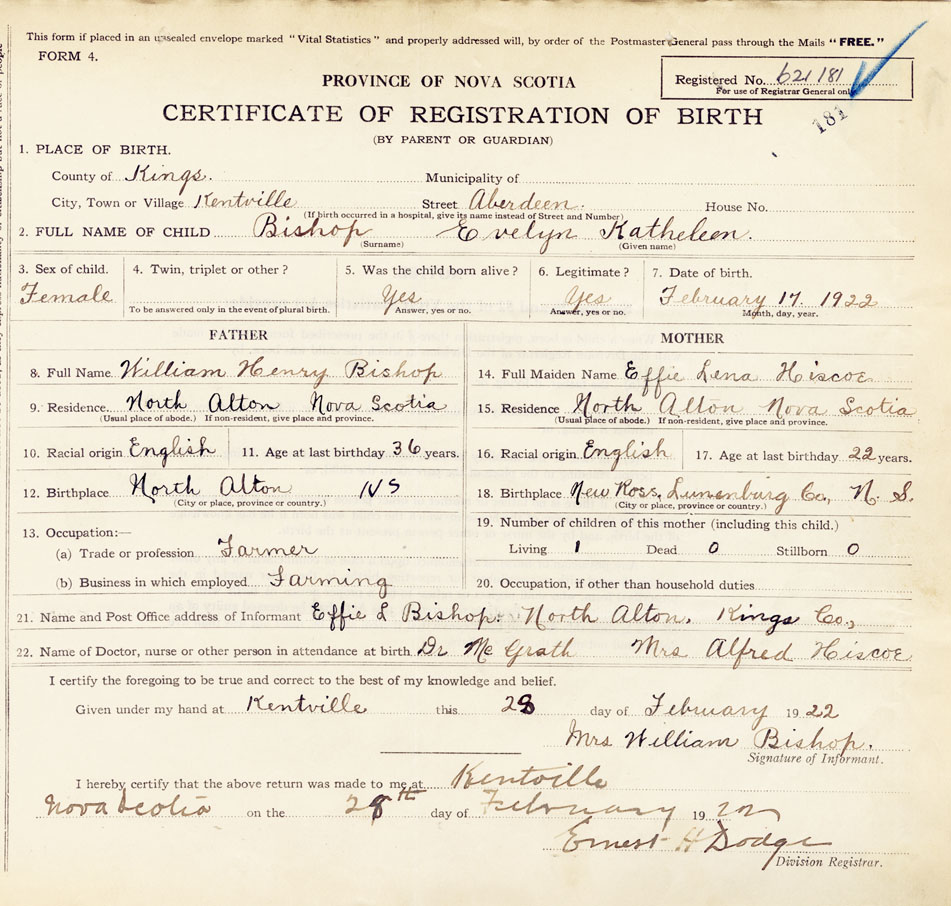 This form if placed in an unsealed envelope marked "Vital Statistics" and properly addressed will, by order of the Postmaster General pass through the Mails "FREE."
FORM 4.
Registered No. 621181
For use of Registrar General only
181
PROVINCE OF NOVA SCOTIA
CERTIFICATE OF REGISTRATION OF BIRTH
(BY PARENT OR GUARDIAN)
1. PLACE OF BIRTH.
County of Kings. Municipality of
City, Town or Village Kentville Street Aberdeen. House No.
(If birth occurred in a hospital, give its name instead of Street and Number)
2. FULL NAME OF CHILD Bishop Evelyn Katheleen.
(Surname) (Given name)
3. Sex of child. 4. Twin, triplet or other? 5. Was the child born alive? 6. Legitimate? 7. Date of birth.
Female Yes Yes February 17. 1922
To be answered only in the event of plural birth. Answer, yes or no. Answer, yes or no. Month, day, year.
FATHER MOTHER
8. Full Name William Henry Bishop 14. Full Maiden Name Effie Lena Hiscoe
9. Residence North Alton Nova Scotia 15. Residence North Alton Nova Scotia
(Usual place of abode.) If non-resident, give place and province. (Usual place of abode.) If non-resident, give place and province.
10. Racial origin English 11. Age at last birthday 36 years. 16. Racial origin English 17. Age at last birthday 22 years.
12. Birthplace North Alton NS 18. Birthplace New Ross, Lunenburg Co., N. S.
(City or place, province or country.) (City or place, province or country.)
13. Occupation:— 19. Number of children of this mother (including this child.)
(a) Trade or profession Farmer Living 1 Dead 0 Stillborn 0
(b) Business in which employed Farming 20. Occupation, if other than household duties
21. Name and Post Office address of Informant Effie L Bishop. North Alton. Kings Co.,
22. Name of Doctor, nurse or other person in attendance at birth Dr McGrath Mrs Alfred Hiscoe
I certify the foregoing to be true and correct to the best of my knowledge and belief.
Given under my hand at Kentville this 28 day of February 1922
Mrs William Bishop.
Signature of Informant.
I hereby certify that the above return was made to me at Kentville
Nova Scotia on the 28th day of February 1922
Ernest H Dodge
Division Registrar.